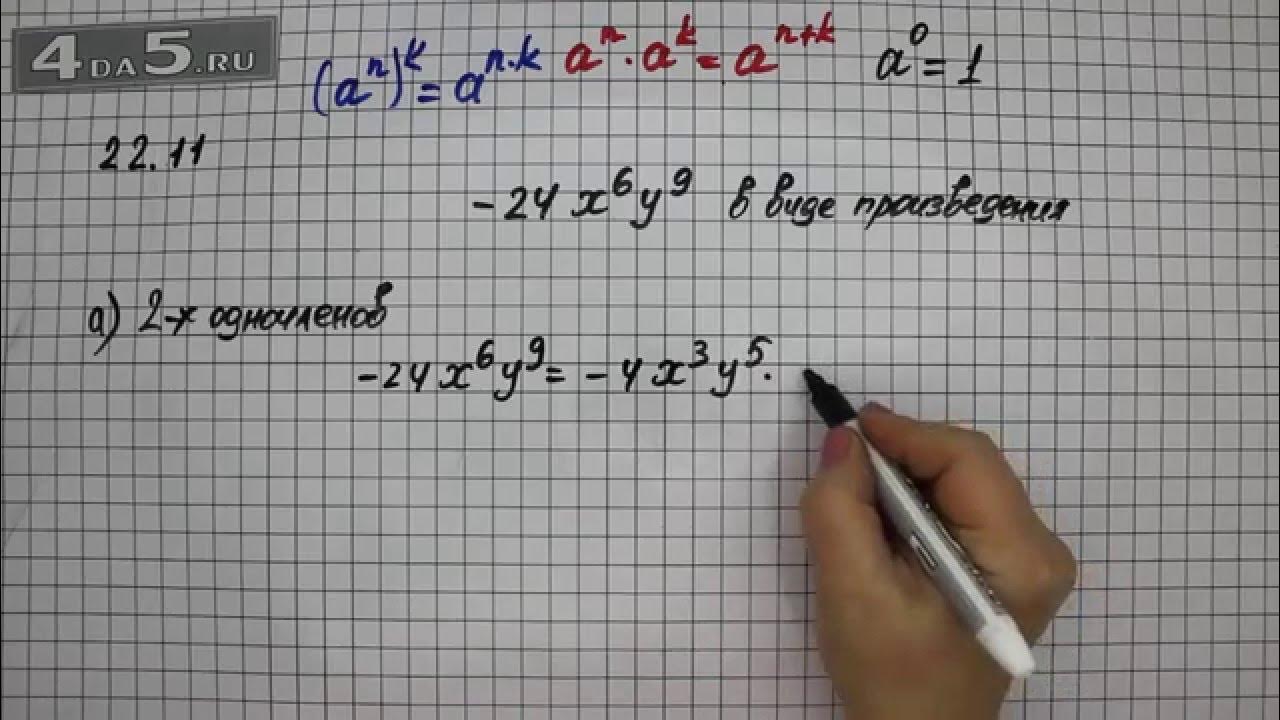 4DA5.RU
(aⁿ)ᵏ = aⁿ·ᵏ aⁿ · aᵏ = aⁿ⁺ᵏ a⁰ = 1
22.11
-24x⁶y⁹ в виде произведения
а) 2-х одночленов
-24x⁶y⁹ = -4x³y⁵·